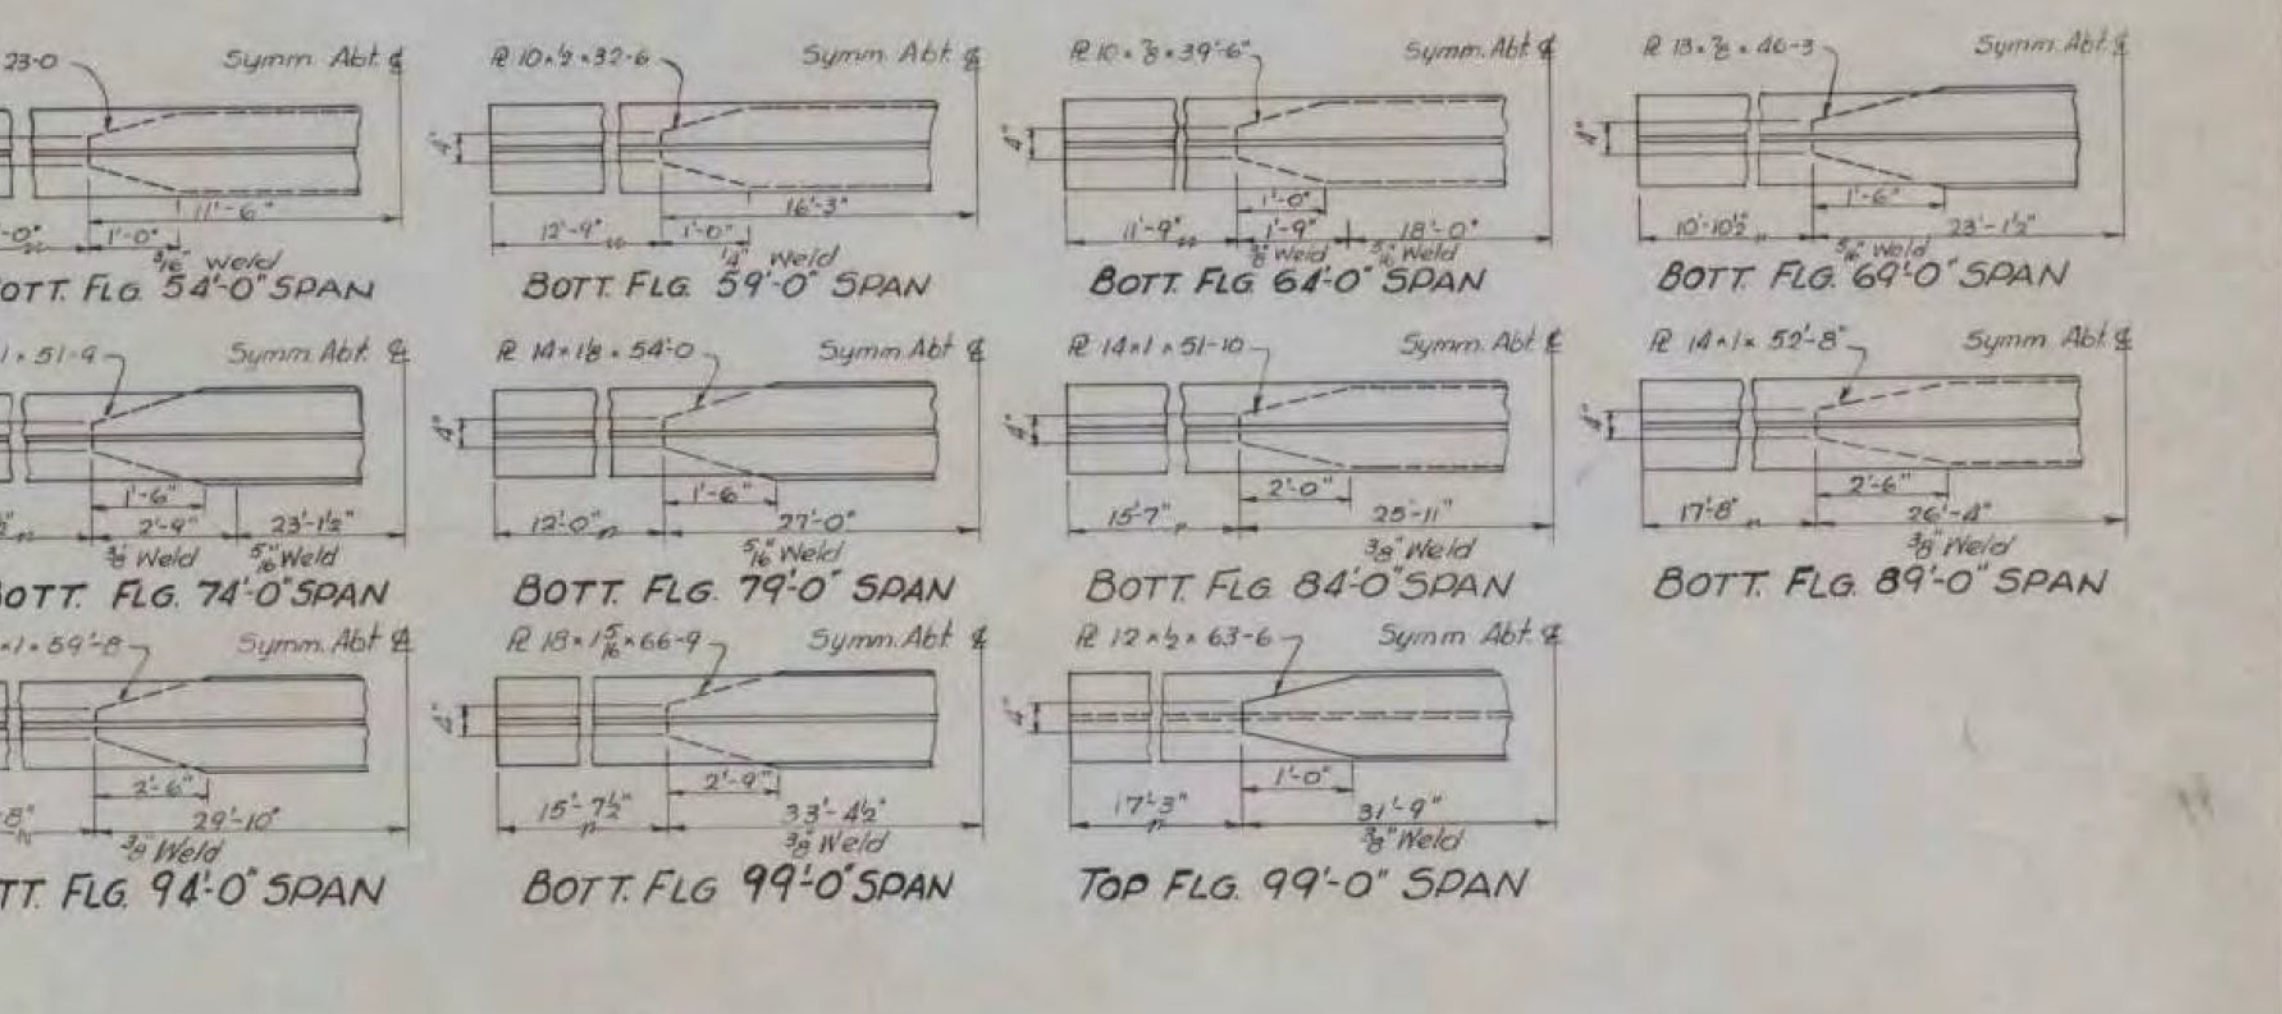 23-0
Symm. Abt. ℄
11'-6"
1'-0"
3/16" weld
OTT. FLG. 54'-0" SPAN
℞ 10 × ½ × 32-6
Symm. Abt. ℄
4"
16'-3"
12'-9"
1'-0"
¼" Weld
BOTT. FLG. 59'-0" SPAN
℞ 10 × ⅞ × 39'-6"
Symm. Abt. ℄
4"
1'-0"
11'-9"
1'-9"
18'-0"
⅜" Weld
5/16" Weld
BOTT. FLG. 64'-0" SPAN
℞ 13 × ⅞ × 46-3
Symm. Abt. ℄
4"
1'-6"
10'-10½"
23'-1½"
5/16" Weld
BOTT. FLG. 69'-0" SPAN
1 × 51-9
Symm. Abt. ℄
1'-6"
2'-9"
23'-1½"
⅜" Weld
5/16" Weld
OTT. FLG. 74'-0" SPAN
℞ 14 × 1⅛ × 54'-0
Symm. Abt ℄
4"
1'-6"
12'-0"
27'-0"
5/16" Weld
BOTT. FLG. 79'-0" SPAN
℞ 14 × 1 × 51-10
Symm. Abt. ℄
4"
2'-0"
15'-7"
25'-11"
⅜" Weld
BOTT. FLG. 84'-0" SPAN
℞ 14 × 1 × 52'-8"
Symm. Abt. ℄
4"
2'-6"
17'-8"
26'-4"
⅜" Weld
BOTT. FLG. 89'-0" SPAN
× 1 × 59'-8
Symm. Abt ℄
2'-6"
8"
29'-10"
⅜" Weld
TT. FLG. 94'-0" SPAN
℞ 18 × 1 5/16 × 66-9
Symm. Abt. ℄
4"
2'-9"
15'-7½"
33'-4½"
⅜" Weld
BOTT. FLG 99'-0" SPAN
℞ 12 × ½ × 63-6
Symm Abt. ℄
4"
1'-0"
17'-3"
31'-9"
⅜" Weld
TOP FLG. 99'-0" SPAN